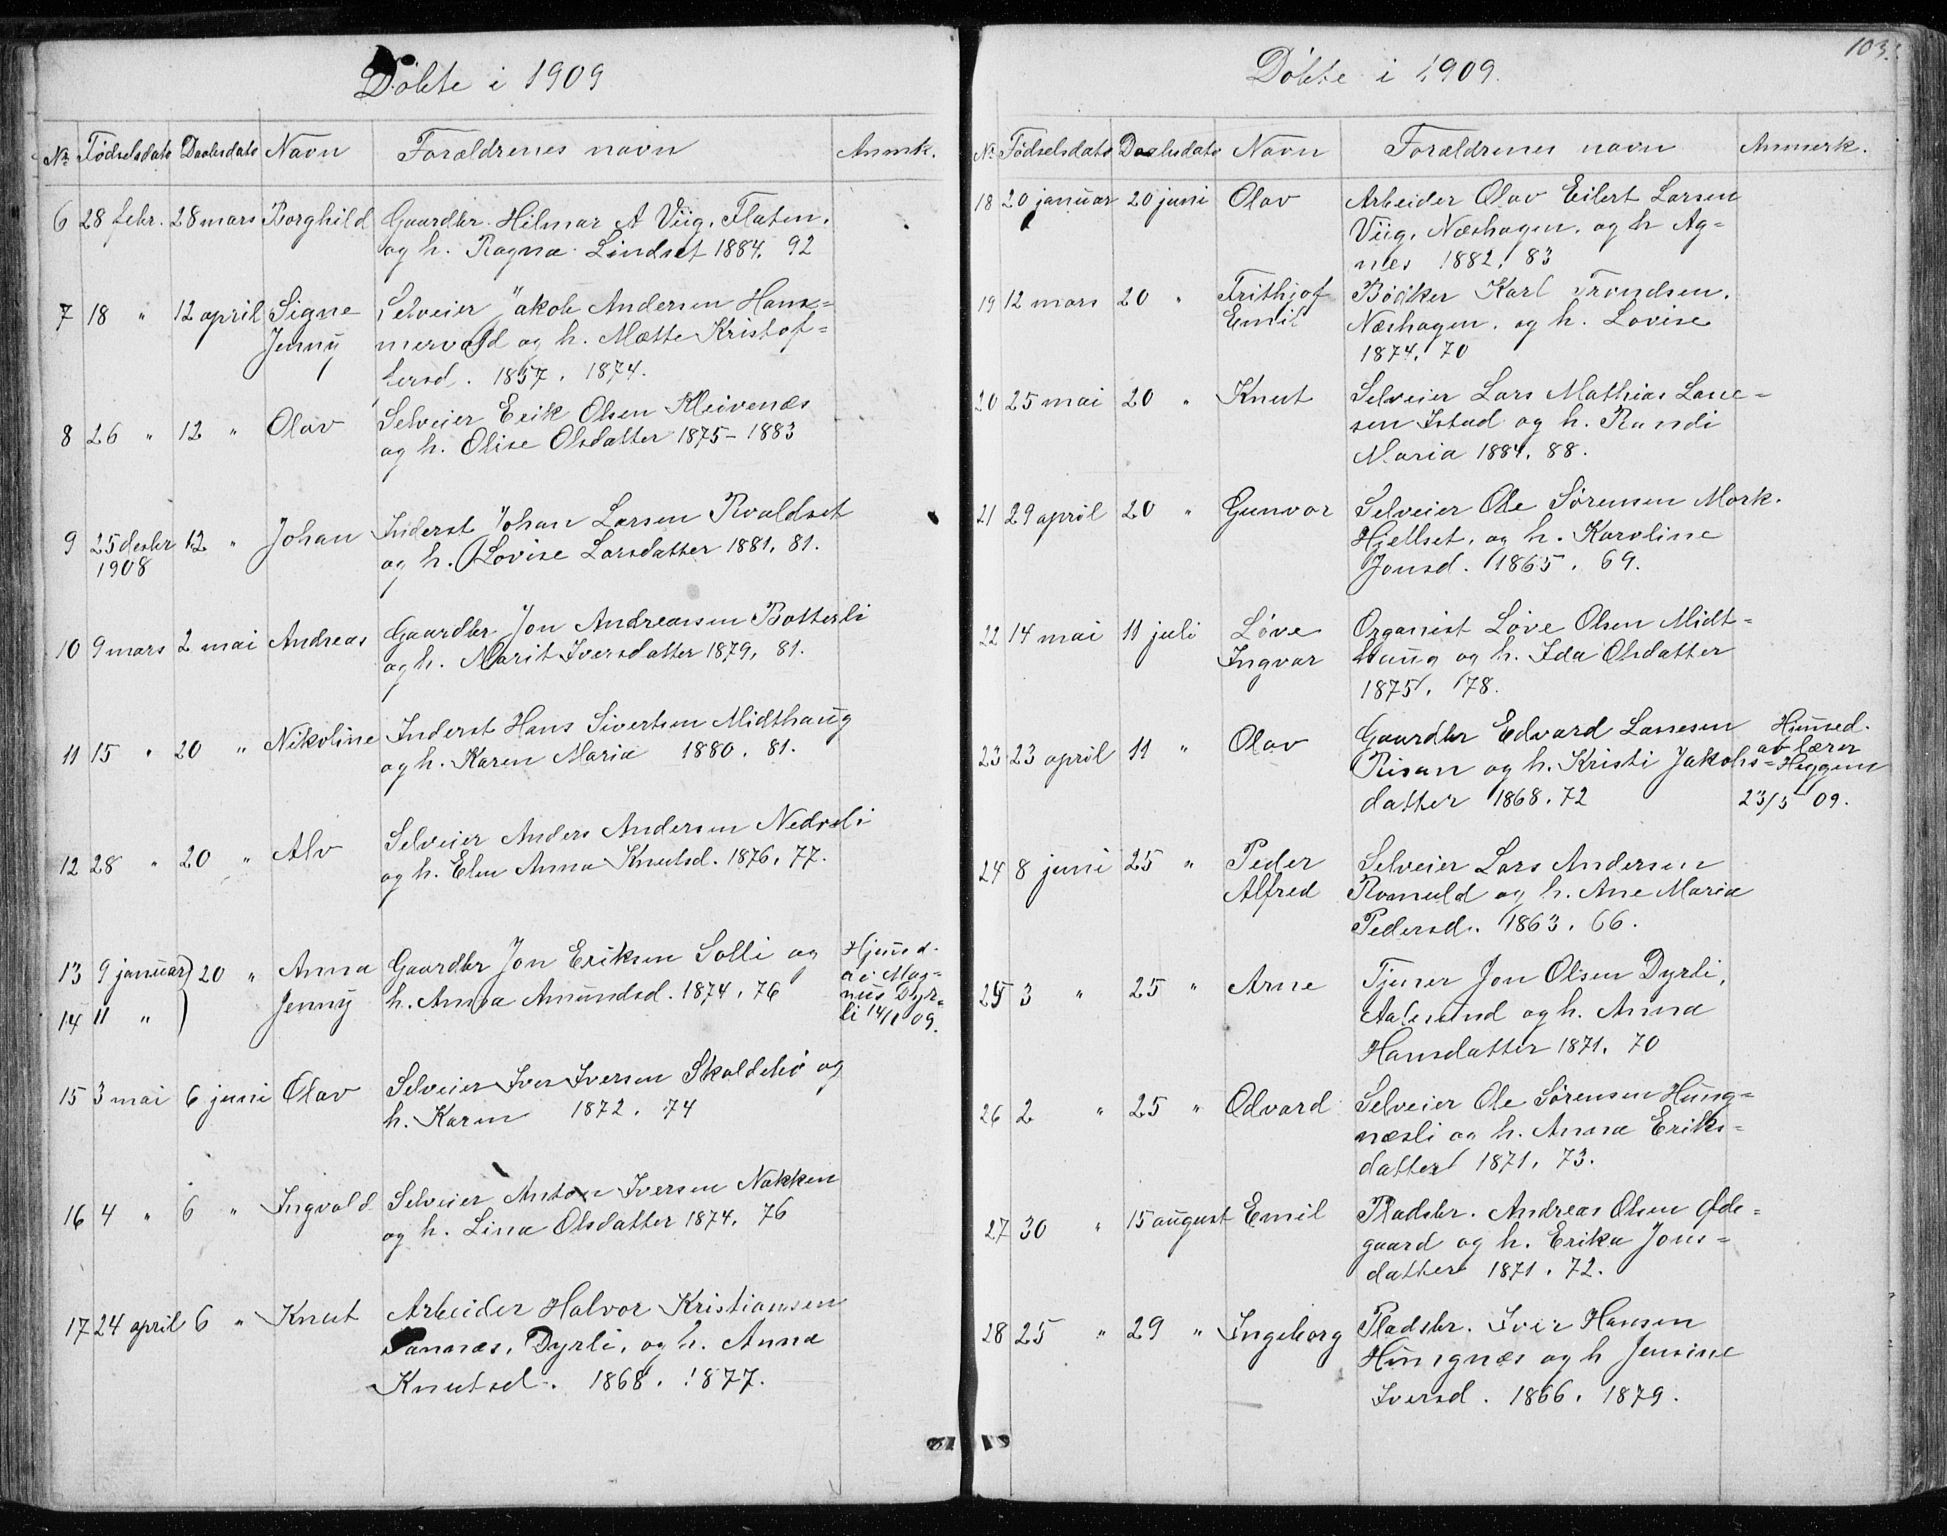 Døbte i 1909
Nr. Fødselsdato Daabsdato Navn Forældrenes navn Anmk.
6 28 febr. 28 mars Borghild Gaardbr. Hilmar A Viig, Flaten,
og h. Ragna Lindset 1884. 92
7 18 " 12 april Signe Selveier Jakob Andersen Ham-
Jenny mervold og h. Mætte Kristof-
fersd. 1857. 1874.
8 26 " 12 " Olav Selveier Erik Olsen Kleivenæs
og h. Olise Olsdatter 1875 - 1883
9 25 desbr 12 " Johan Inderst Johan Larsen Roaldset
1908 og h. Lovise Larsdatter 1881. 81.
10 9 mars 2 mai Andreas Gaardbr Jon Andreassen Botterli
og h. Marit Iversdatter 1879, 81.
11 15 " 20 " Nikoline Inderst Hans Sivertsen Midthaug
og h. Karen Maria 1880. 81.
12 28 " 20 " Alv Selveier Anders Andersen Nedreli
og h. Elen Anna Knutsd. 1876, 77.
13 9 januar) 20 " Anna Gaardbr Jon Eriksen Solli og Hjemd.
14 11 " ) Jenny h. Anna Amundsd. 1874, 76 a i Mag-
nus Dyr-
li 14/1 09.
15 3 mai 6 juni Olav Selveier Iver Iversen Skaldehö og
h. Karen 1872. 74
16 4 " 6 " Ingvald Selveier Anton Iversen Nakken
og h. Lina Olsdatter 1874, 76
17 24 april 6 " Knut Arbeider Halvor Kristiansen
Sannæs, Dyrli, og h. Anna
Knutsd. 1868. 1877.
103.
Døbte i 1909.
Nr. Fødselsdato Daabsdato Navn Forældrenes navn Anmerk.
18 20 januar 20 juni Olav Arbeider Olav Eilert Larsen
Viig, Næshagen, og h Ag-
nes 1882, 83
19 12 mars 20 " Frithjof Bödker Karl Trondsen,
Emil Næshagen, og h. Lovise
1874. 70
20 25 mai 20 " Knut Selveier Lars Mathias Lasse-
sen Istad og h. Randi
Maria 1884. 88.
21 29 april 20 " Gunvor Selveier Ole Sørensen Mork.
Hjellset, og h. Karoline
Jonsd. 1865. 69.
22 14 mai 11 juli Løve Organist Løve Olsen Midt-
Ingvar haug og h. Ida Olsdatter
1875. 78.
23 23 april 11 " Olav Gaardbr Edvard Lassesen Hjemmed.
Risan og h. Kristi Jakobs- av lærer
datter 1868. 72 Heggem
23/5 09.
24 8 juni 25 " Peder Selveier Lars Andersen
Alfred Romuld og h. Ane Maria
Pedersd. 1863. 66.
25 3 " 25 " Arne Tjener Jon Olsen Dyrli,
Aalesund og h. Anna
Hansdatter 1871. 70
26 2 " 25 " Odvard Selveier Ole Sørensen Hung-
næsli og h. Anna Eriks-
datter 1871. 73.
27 30 " 15 august Emil Pladsbr. Andreas Olsen Øde-
gaard og h. Erika Jons-
datter 1871. 72.
28 25 " 29 " Ingeborg Pladsbr. Iver Hansen
Hungnæs og h Jensine
Iversd. 1866. 1879.